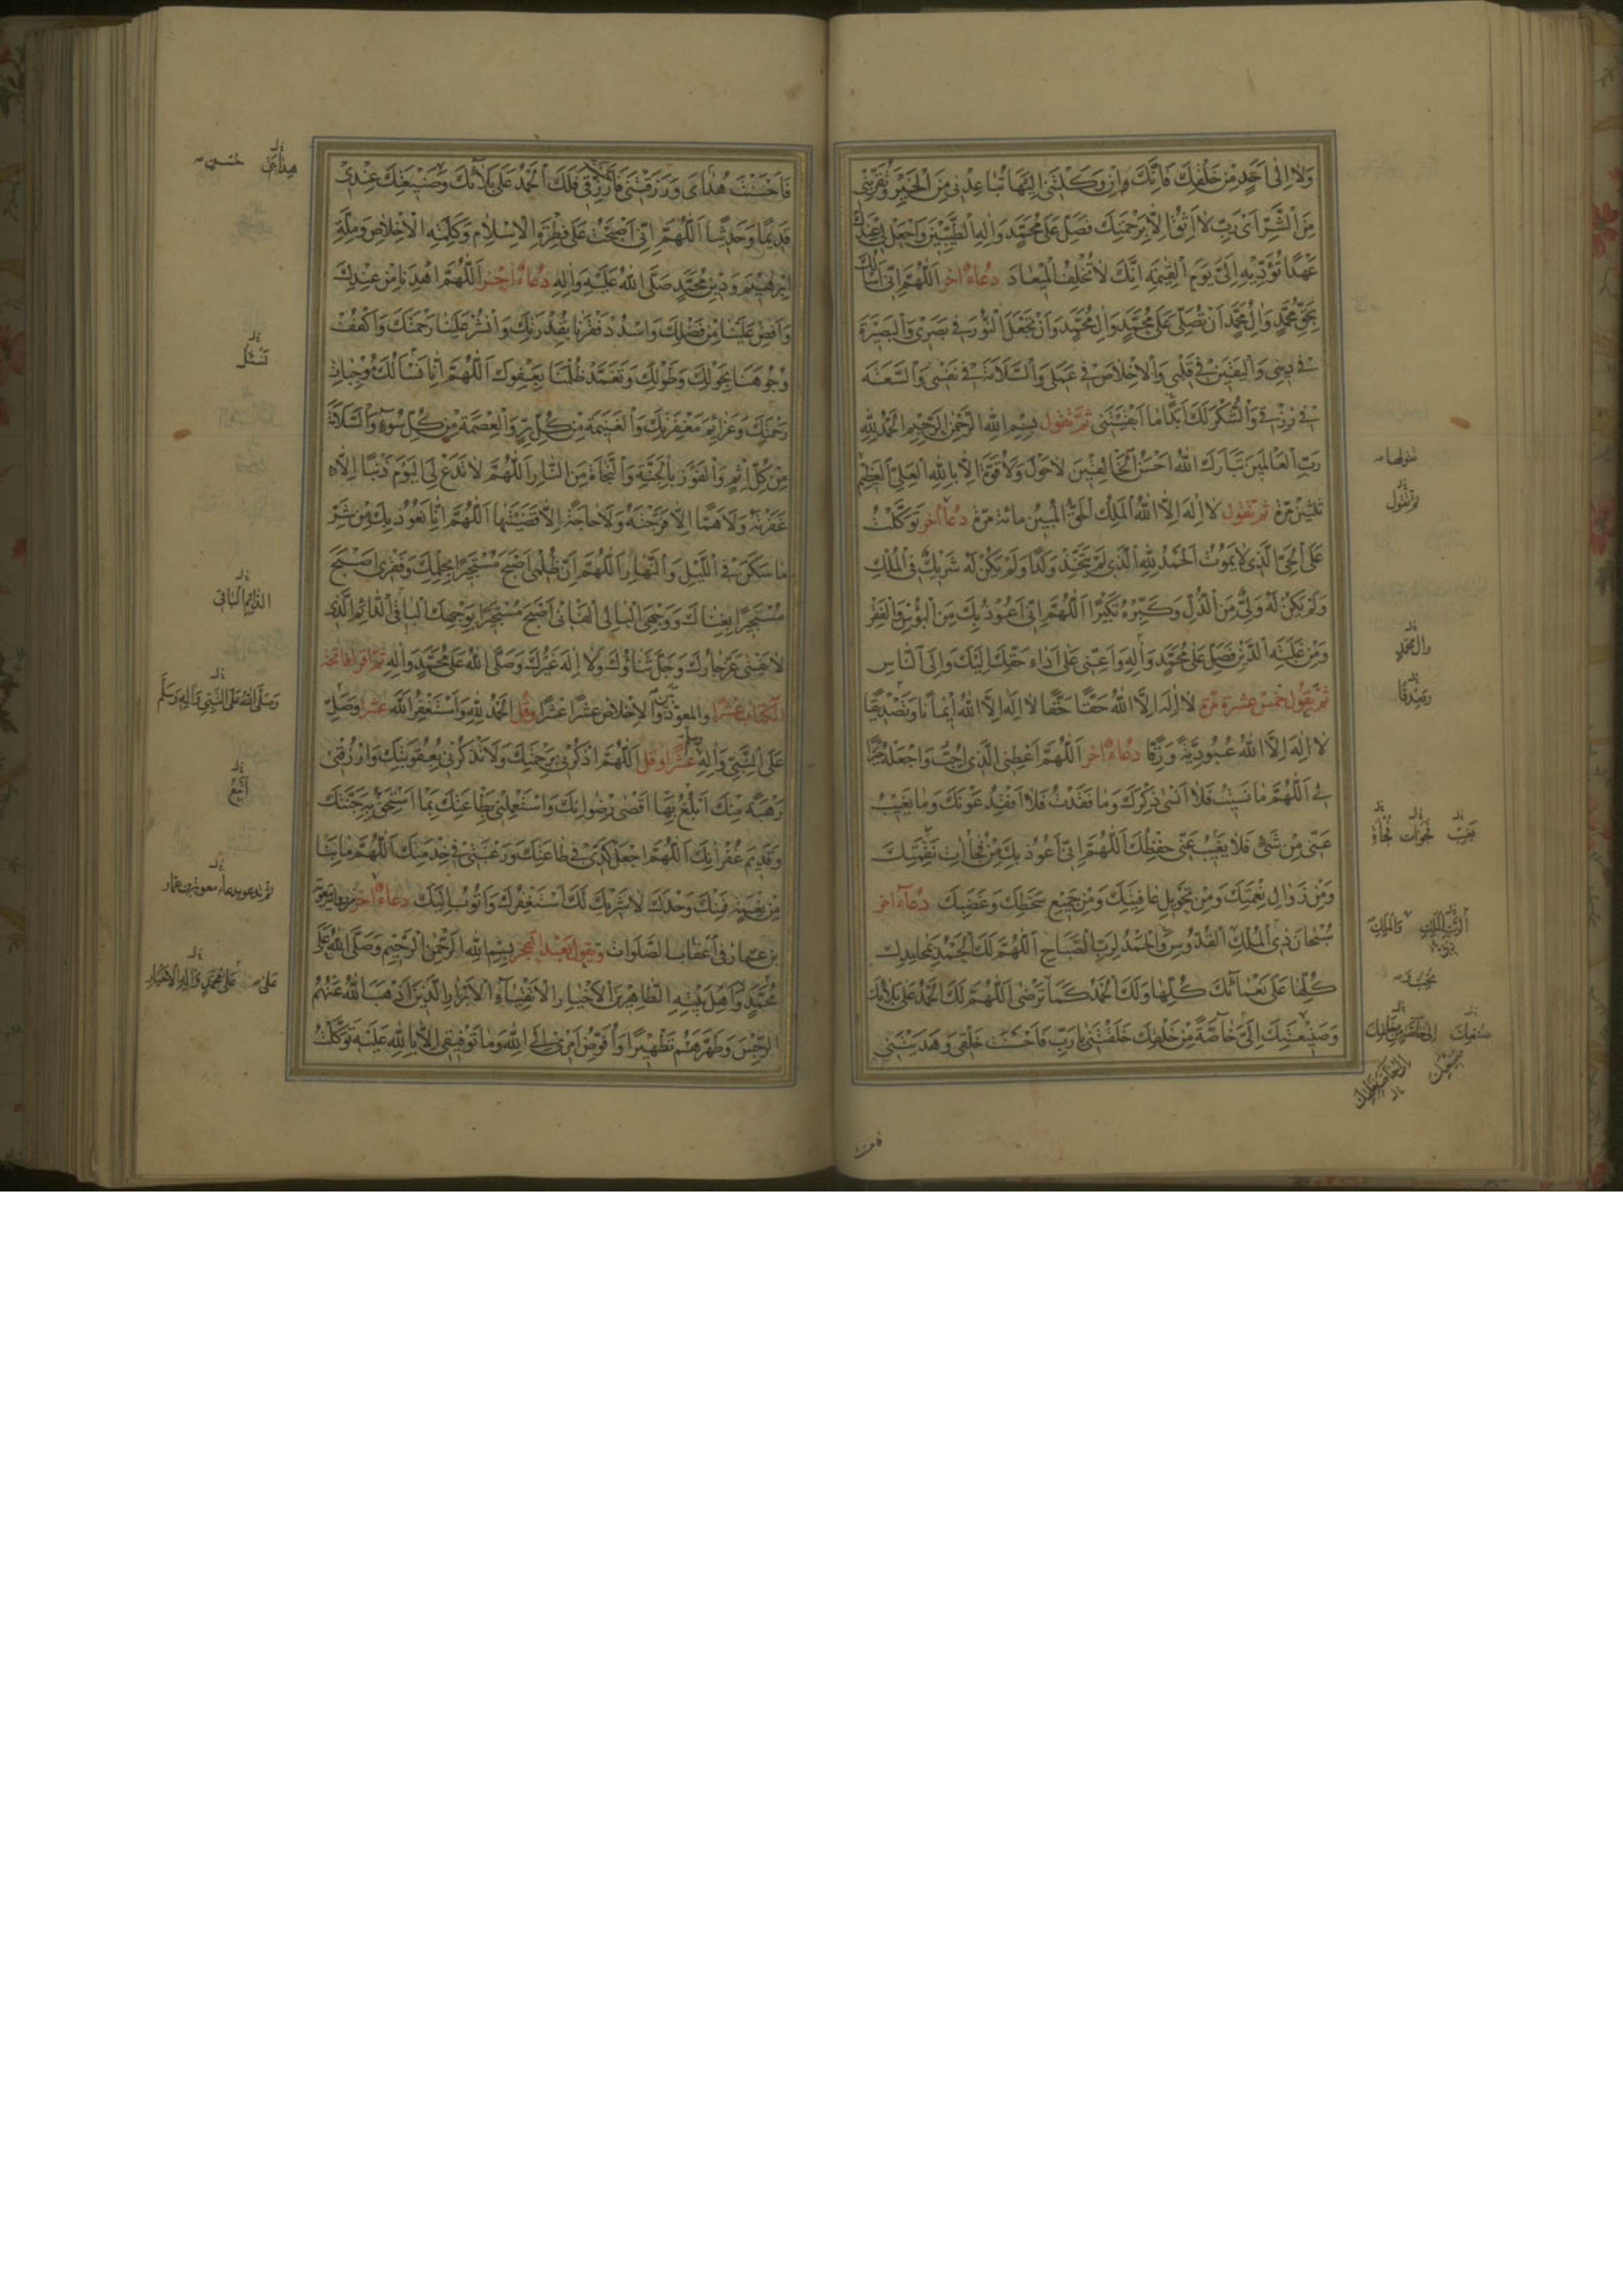 وَلَا اِلٰى اَحَدٍ مِنْ خَلْقِكَ فَاِنَّكَ وَاِنْ وَكَلْتَنى اِلَيْهَا تُبَاعِدْنى مِنَ الْخَيْرِ وَتُقَرِّبْنى
مِنَ الشَّرِّ اَىْ رَبِّ لَا اَثِقُ اِلَّا بِرَحْمَتِكَ فَصَلِّ عَلٰى مُحَمَّدٍ وَاٰلِهِ الطَّيِّبِينَ وَاجْعَلْ لى عِنْدَكَ
عَهْدًا تُؤَدِّيهِ اِلَىَّ يَوْمَ الْقِيٰمَةِ اِنَّكَ لَا تُخْلِفُ الْمِيعَادَ دُعَاءٌ اٰخَرُ اَللّٰهُمَّ اِنّى اَسْاَلُكَ
بِحَقِّ مُحَمَّدٍ وَاٰلِ مُحَمَّدٍ اَنْ تُصَلِّىَ عَلٰى مُحَمَّدٍ وَاٰلِ مُحَمَّدٍ وَاَنْ تَجْعَلَ النُّورَ فى بَصَرى وَالْبَصِيرَةَ
فى دِينى وَالْيَقِينَ فى قَلْبى وَالْاِخْلَاصَ فى عَمَلى وَالسَّلَامَةَ فى نَفْسى وَالسَّعَةَ
فى رِزْقى وَالشُّكْرَ لَكَ اَبَدًا مَا اَبْقَيْتَنى ثُمَّ تَقُولُ بِسْمِ اللّٰهِ الرَّحْمٰنِ الرَّحِيمِ اَلْحَمْدُ لِلّٰهِ
رَبِّ الْعَالَمِينَ تَبَارَكَ اللّٰهُ اَحْسَنُ الْخَالِقِينَ لَا حَوْلَ وَلَا قُوَّةَ اِلَّا بِاللّٰهِ الْعَلِىِّ الْعَظِيمِ
ثَلٰثِينَ مَرَّةً ثُمَّ تَقُولُ لَا اِلٰهَ اِلَّا اللّٰهُ الْمَلِكُ الْحَقُّ الْمُبِينُ مِائَةَ مَرَّةٍ دُعَاءٌ اٰخَرُ تَوَكَّلْتُ
عَلَى الْحَىِّ الَّذى لَا يَمُوتُ اَلْحَمْدُ لِلّٰهِ الَّذى لَمْ يَتَّخِذْ وَلَدًا وَلَمْ يَكُنْ لَهُ شَرِيكٌ فى الْمُلْكِ
وَلَمْ يَكُنْ لَهُ وَلِىٌّ مِنَ الذُّلِّ وَكَبِّرْهُ تَكْبِيرًا اَللّٰهُمَّ اِنّى اَعُوذُ بِكَ مِنَ الْبُؤْسِ وَالْفَقْرِ
وَمِنْ غَلَبَةِ الدَّيْنِ فَصَلِّ عَلٰى مُحَمَّدٍ وَاٰلِهِ وَاَعِنّى عَلٰى اَدَاءِ حَقِّكَ اِلَيْكَ وَاِلَى النَّاسِ
ثُمَّ يَقُولُ خَمْسَ عَشْرَةَ مَرَّةً لَا اِلٰهَ اِلَّا اللّٰهُ حَقًّا حَقًّا لَا اِلٰهَ اِلَّا اللّٰهُ اِيمَانًا وَتَصْدِيقًا
لَا اِلٰهَ اِلَّا اللّٰهُ عُبُودِيَّةً وَرِقًّا دُعَاءٌ اٰخَرُ اَللّٰهُمَّ اَعْطِنى الَّذى اُحِبُّ وَاجْعَلْهُ خَيْرًا
لى اَللّٰهُمَّ مَا نَسِيتُ فَلَا اَنْسٰى ذِكْرَكَ وَمَا فَقَدْتُ فَلَا اَفْقِدُ عَوْنَكَ وَمَا يَغِيبُ
عَنّى مِنْ شَىْءٍ فَلَا يَغِيبُ عَنّى حِفْظُكَ اَللّٰهُمَّ اِنّى اَعُوذُ بِكَ مِنْ فُجٰاَاتِ نَقِمَتِكَ
وَمِنْ زَوَالِ نِعْمَتِكَ وَمِنْ تَحْوِيلِ عَافِيَتِكَ وَمِنْ جَمِيعِ سَخَطِكَ وَغَضَبِكَ دُعَاءٌ اٰخَرُ
سُبْحَانَ ذِى الْمُلْكِ الْقُدُّوسِ وَالْحَمْدُ لِرَبِّ الصَّبَاحِ اَللّٰهُمَّ لَكَ الْحَمْدُ بِمَحَامِدِكَ
كُلِّهَا عَلٰى نَعْمَائِكَ كُلِّهَا وَلَكَ الْحَمْدُ كَمَا تَرْضٰى اَللّٰهُمَّ لَكَ الْحَمْدُ عَلٰى بَلَائِكَ
وَصَنِيعَتِكَ اِلَىَّ خَاصَّةً مِنْ خَلْقِكَ خَلَقْتَنى يَا رَبِّ فَاَحْسَنْتَ خَلْقى وَهَدَيْتَنى
ثم تقول
وال محمد
وصدقا
يغيب فجوات فجأة
صنيعك
فَاَحْسَنْتَ هُدَاىَ وَرَزَقْتَنى فَاَحْسَنْتَ رِزْقى فَلَكَ الْحَمْدُ عَلٰى بَلَائِكَ وَصَنِيعَتِكَ عِنْدى
قَدِيمًا وَحَدِيثًا اَللّٰهُمَّ اِنّى اَصْبَحْتُ عَلٰى فِطْرَةِ الْاِسْلَامِ وَكَلِمَةِ الْاِخْلَاصِ وَمِلَّةِ
اِبْرٰهِيمَ وَدِينِ مُحَمَّدٍ صَلَّى اللّٰهُ عَلَيْهِ وَاٰلِهِ دُعَاءٌ اٰخَرُ اَللّٰهُمَّ اهْدِنَا مِنْ عِنْدِكَ
وَاَفِضْ عَلَيْنَا مِنْ فَضْلِكَ وَاسْدُدْ فَقْرَنَا بِقُدْرَتِكَ وَانْشُرْ عَلَيْنَا رَحْمَتَكَ وَاكْفُفْ
وُجُوهَنَا بِحَوْلِكَ وَطَوْلِكَ وَتَغَمَّدْ ظُلْمَنَا بِعَفْوِكَ اَللّٰهُمَّ اِنَّا نَسْاَلُكَ مُوجِبَاتِ
رَحْمَتِكَ وَعَزَائِمَ مَغْفِرَتِكَ وَالْغَنِيمَةَ مِنْ كُلِّ بِرٍّ وَالْعِصْمَةَ مِنْ كُلِّ سُوءٍ وَالسَّلَامَةَ
مِنْ كُلِّ اِثْمٍ وَالْفَوْزَ بِالْجَنَّةِ وَالنَّجَاةَ مِنَ النَّارِ اَللّٰهُمَّ لَا تَدَعْ لى الْيَوْمَ ذَنْبًا اِلَّا
غَفَرْتَهُ وَلَا هَمًّا اِلَّا فَرَّجْتَهُ وَلَا حَاجَةً اِلَّا قَضَيْتَهَا اَللّٰهُمَّ اِنَّا نَعُوذُ بِكَ مِنْ شَرِّ
مَا سَكَنَ فى اللَّيْلِ وَالنَّهَارِ اَللّٰهُمَّ اِنَّ ظُلْمى اَصْبَحَ مُسْتَجِيرًا بِحِلْمِكَ وَفَقْرى اَصْبَحَ
مُسْتَجِيرًا بِغِنَاكَ وَوَجْهِىَ الْبَالى الْفَانى اَصْبَحَ مُسْتَجِيرًا بِوَجْهِكَ الْبَاقى الدَّائِمِ الَّذى
لَا يَفْنٰى عَزَّ جَارُكَ وَجَلَّ ثَنَاؤُكَ وَلَا اِلٰهَ غَيْرُكَ وَصَلَّى اللّٰهُ عَلٰى مُحَمَّدٍ وَاٰلِهِ ثُمَّ اقْرَأْ فَاتِحَةَ
الْكِتَابِ عَشْرًا وَالْمُعَوِّذَتَيْنِ وَالْاِخْلَاصَ عَشْرًا عَشْرًا وَقُلْ اَلْحَمْدُ لِلّٰهِ وَاَسْتَغْفِرُ اللّٰهَ عَشْرًا وَصَلِّ
عَلَى النَّبِىِّ وَاٰلِهِ عَشْرًا وَقُلْ اَللّٰهُمَّ اذْكُرْنى بِرَحْمَتِكَ وَلَا تَذْكُرْنى بِعُقُوبَتِكَ وَارْزُقْنى
رَهْبَةً مِنْكَ اَبْلُغُ بِهَا اَقْصٰى رِضْوَانِكَ وَاسْتَعْمِلْنى بِطَاعَتِكَ بِمَا اَسْتَحِقُّ بِهِ جَنَّتَكَ
وَقَدِيمَ غُفْرَانِكَ اَللّٰهُمَّ اجْعَلْ كَدّى فى طَاعَتِكَ وَرَغْبَتى فى خِدْمَتِكَ اَللّٰهُمَّ مَا بِنَا
مِنْ نِعْمَةٍ فَمِنْكَ وَحْدَكَ لَا شَرِيكَ لَكَ اَسْتَغْفِرُكَ وَاَتُوبُ اِلَيْكَ دُعَاءٌ اٰخَرُ
بْنِ عَمَّارٍ فى اَعْقَابِ الصَّلَوَاتِ وَيَقُولُ بَعْدَ الْفَجْرِ بِسْمِ اللّٰهِ الرَّحْمٰنِ الرَّحِيمِ وَصَلَّى اللّٰهُ عَلٰى
مُحَمَّدٍ وَاَهْلِ بَيْتِهِ الطَّاهِرِينَ الْاَخْيَارِ الْاَتْقِيَاءِ الْاَبْرَارِ الَّذِينَ اَذْهَبَ اللّٰهُ عَنْهُمُ
الرِّجْسَ وَطَهَّرَهُمْ تَطْهِيرًا وَاُفَوِّضُ اَمْرى اِلَى اللّٰهِ وَمَا تَوْفِيقى اِلَّا بِاللّٰهِ عَلَيْهِ تَوَكَّلْتُ
الدائم الباقى
وَصَلَّى اللهُ عَلَى النَّبِىِّ وَآلِهِ وَسَلَّمَ
ثم تدعو بدعاء معوية بن عمار
على محمد وآله الاخيار